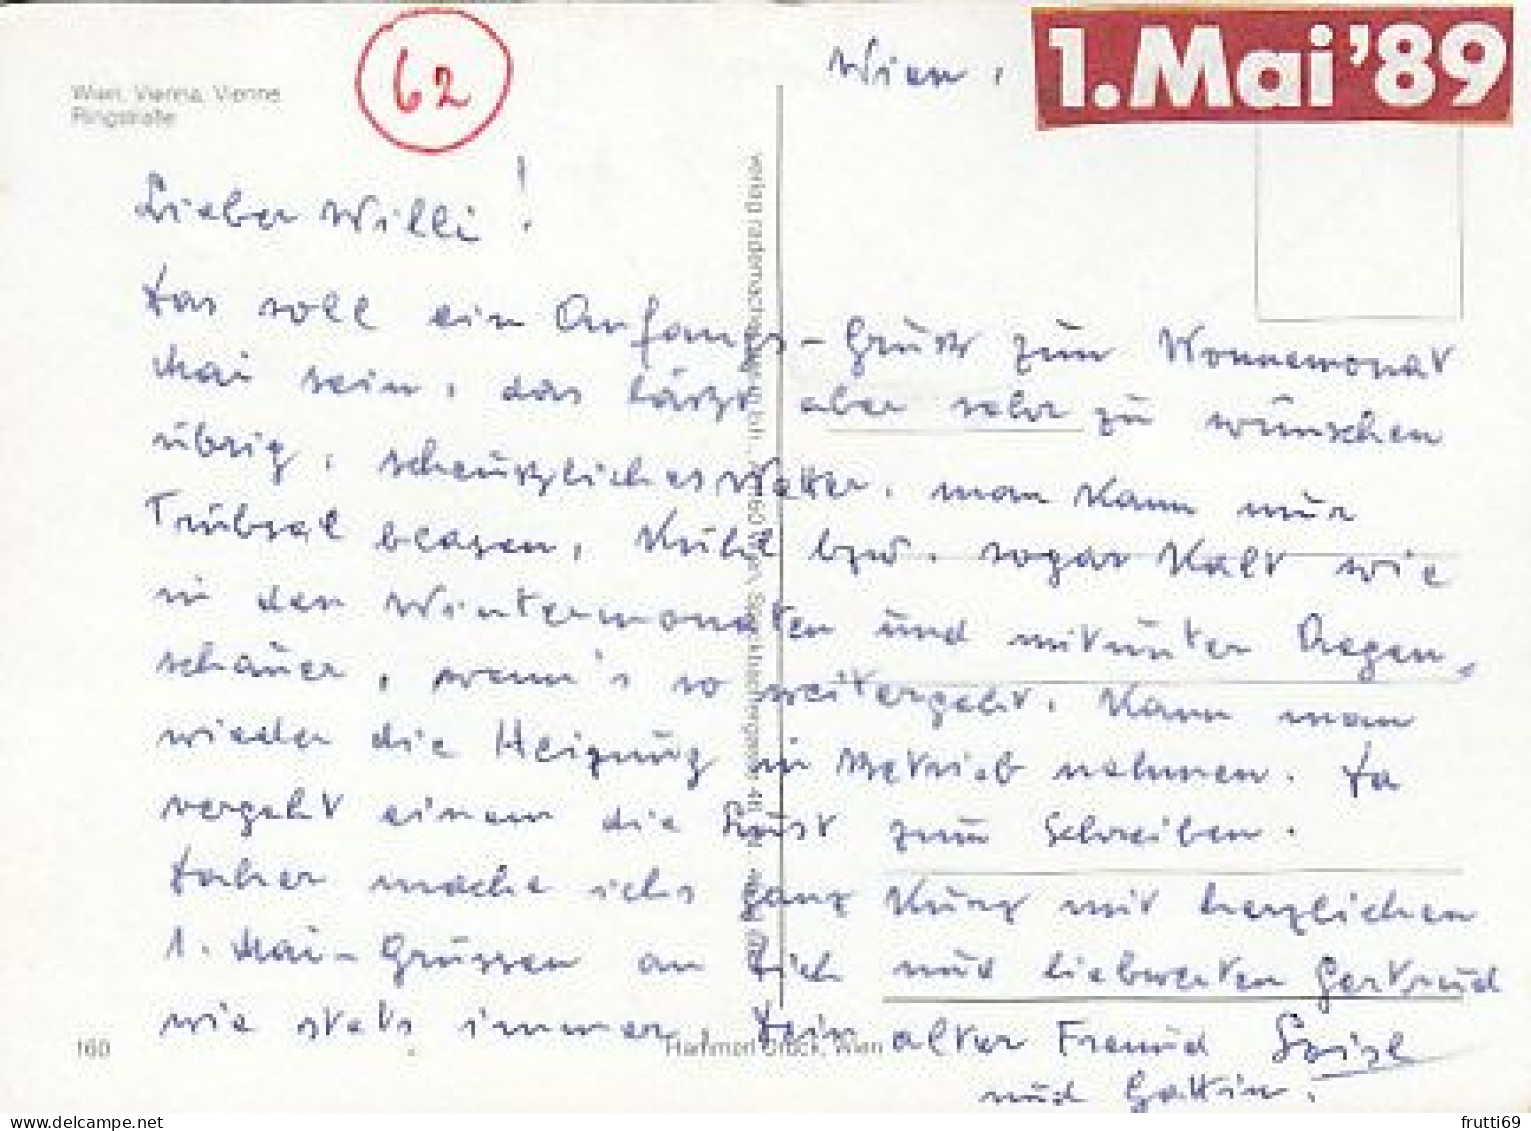 Wien, Vienna, Vienne
Ringstraße
62
Wien,
1. Mai '89
Lieber Willi!
Das soll ein Anfangs-Gruß zum Wonnemonat
Mai sein, das läßt aber sehr zu wünschen
übrig, scheußliches Wetter, man kann nur
Trübsal blasen, kühl bzw. sogar kalt wie
in den Wintermonaten und mitunter Regen-
schauer, wenn's so weitergeht, kann man
wieder die Heizung in Betrieb nehmen. Da
vergeht einem die Lust zum Schreiben.
Daher mache ichs ganz kurz mit herzlichen
1. Mai-Grüssen an Dich und liebwerten Gertrud
wie stets immer, Dein alter Freund
und Gattin.
160
Hammon Druck, Wien
frutti69